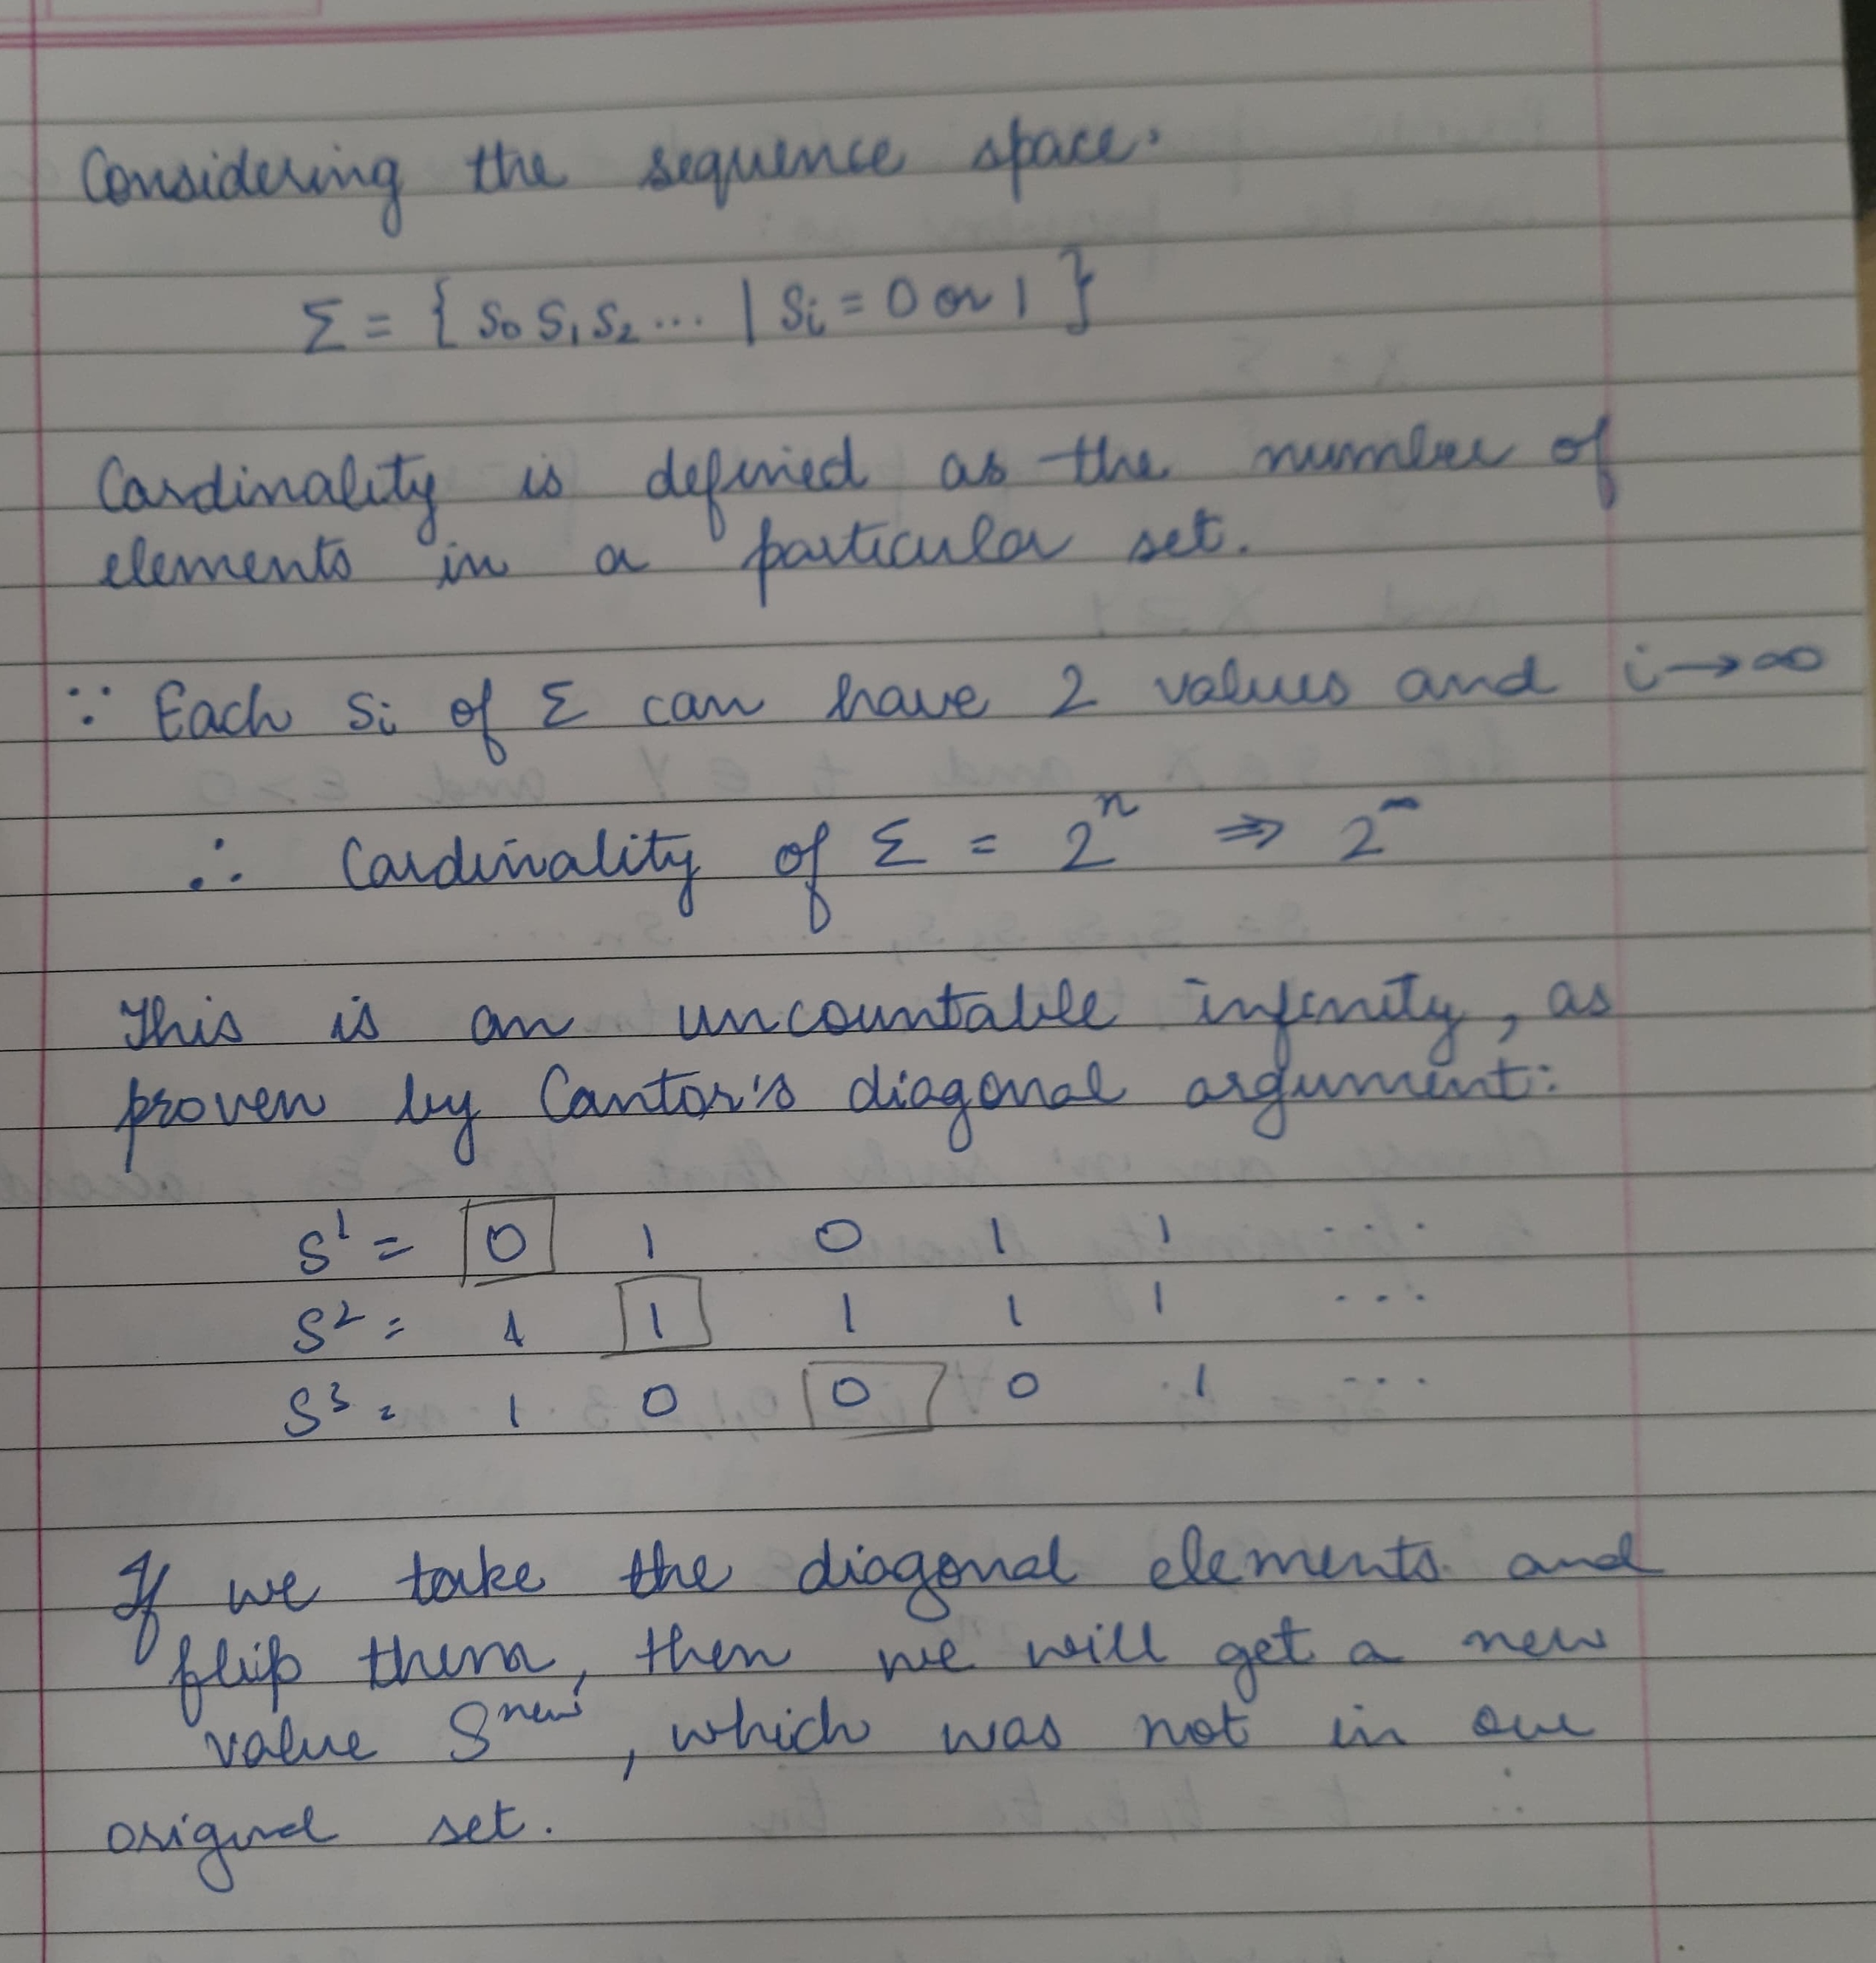 Considering the sequence space.
Σ = { S₀ S₁ S₂ ... | Sᵢ = 0 or 1 }
Cardinality is defined as the number of
elements in a particular set.
∵ Each Sᵢ of Σ can have 2 values and i → ∞
∴ Cardinality of Σ = 2ⁿ ⇒ 2^∞
This is an uncountable infinity, as
proven by Cantor's diagonal argument:
S¹ = 0 1 0 1 1 ....
S² = 1 1 1 1 1 ...
S³ = 1 0 0 0 1 ...
If we take the diagonal elements and
flip them, then we will get a new
value S^new, which was not in our
original set.